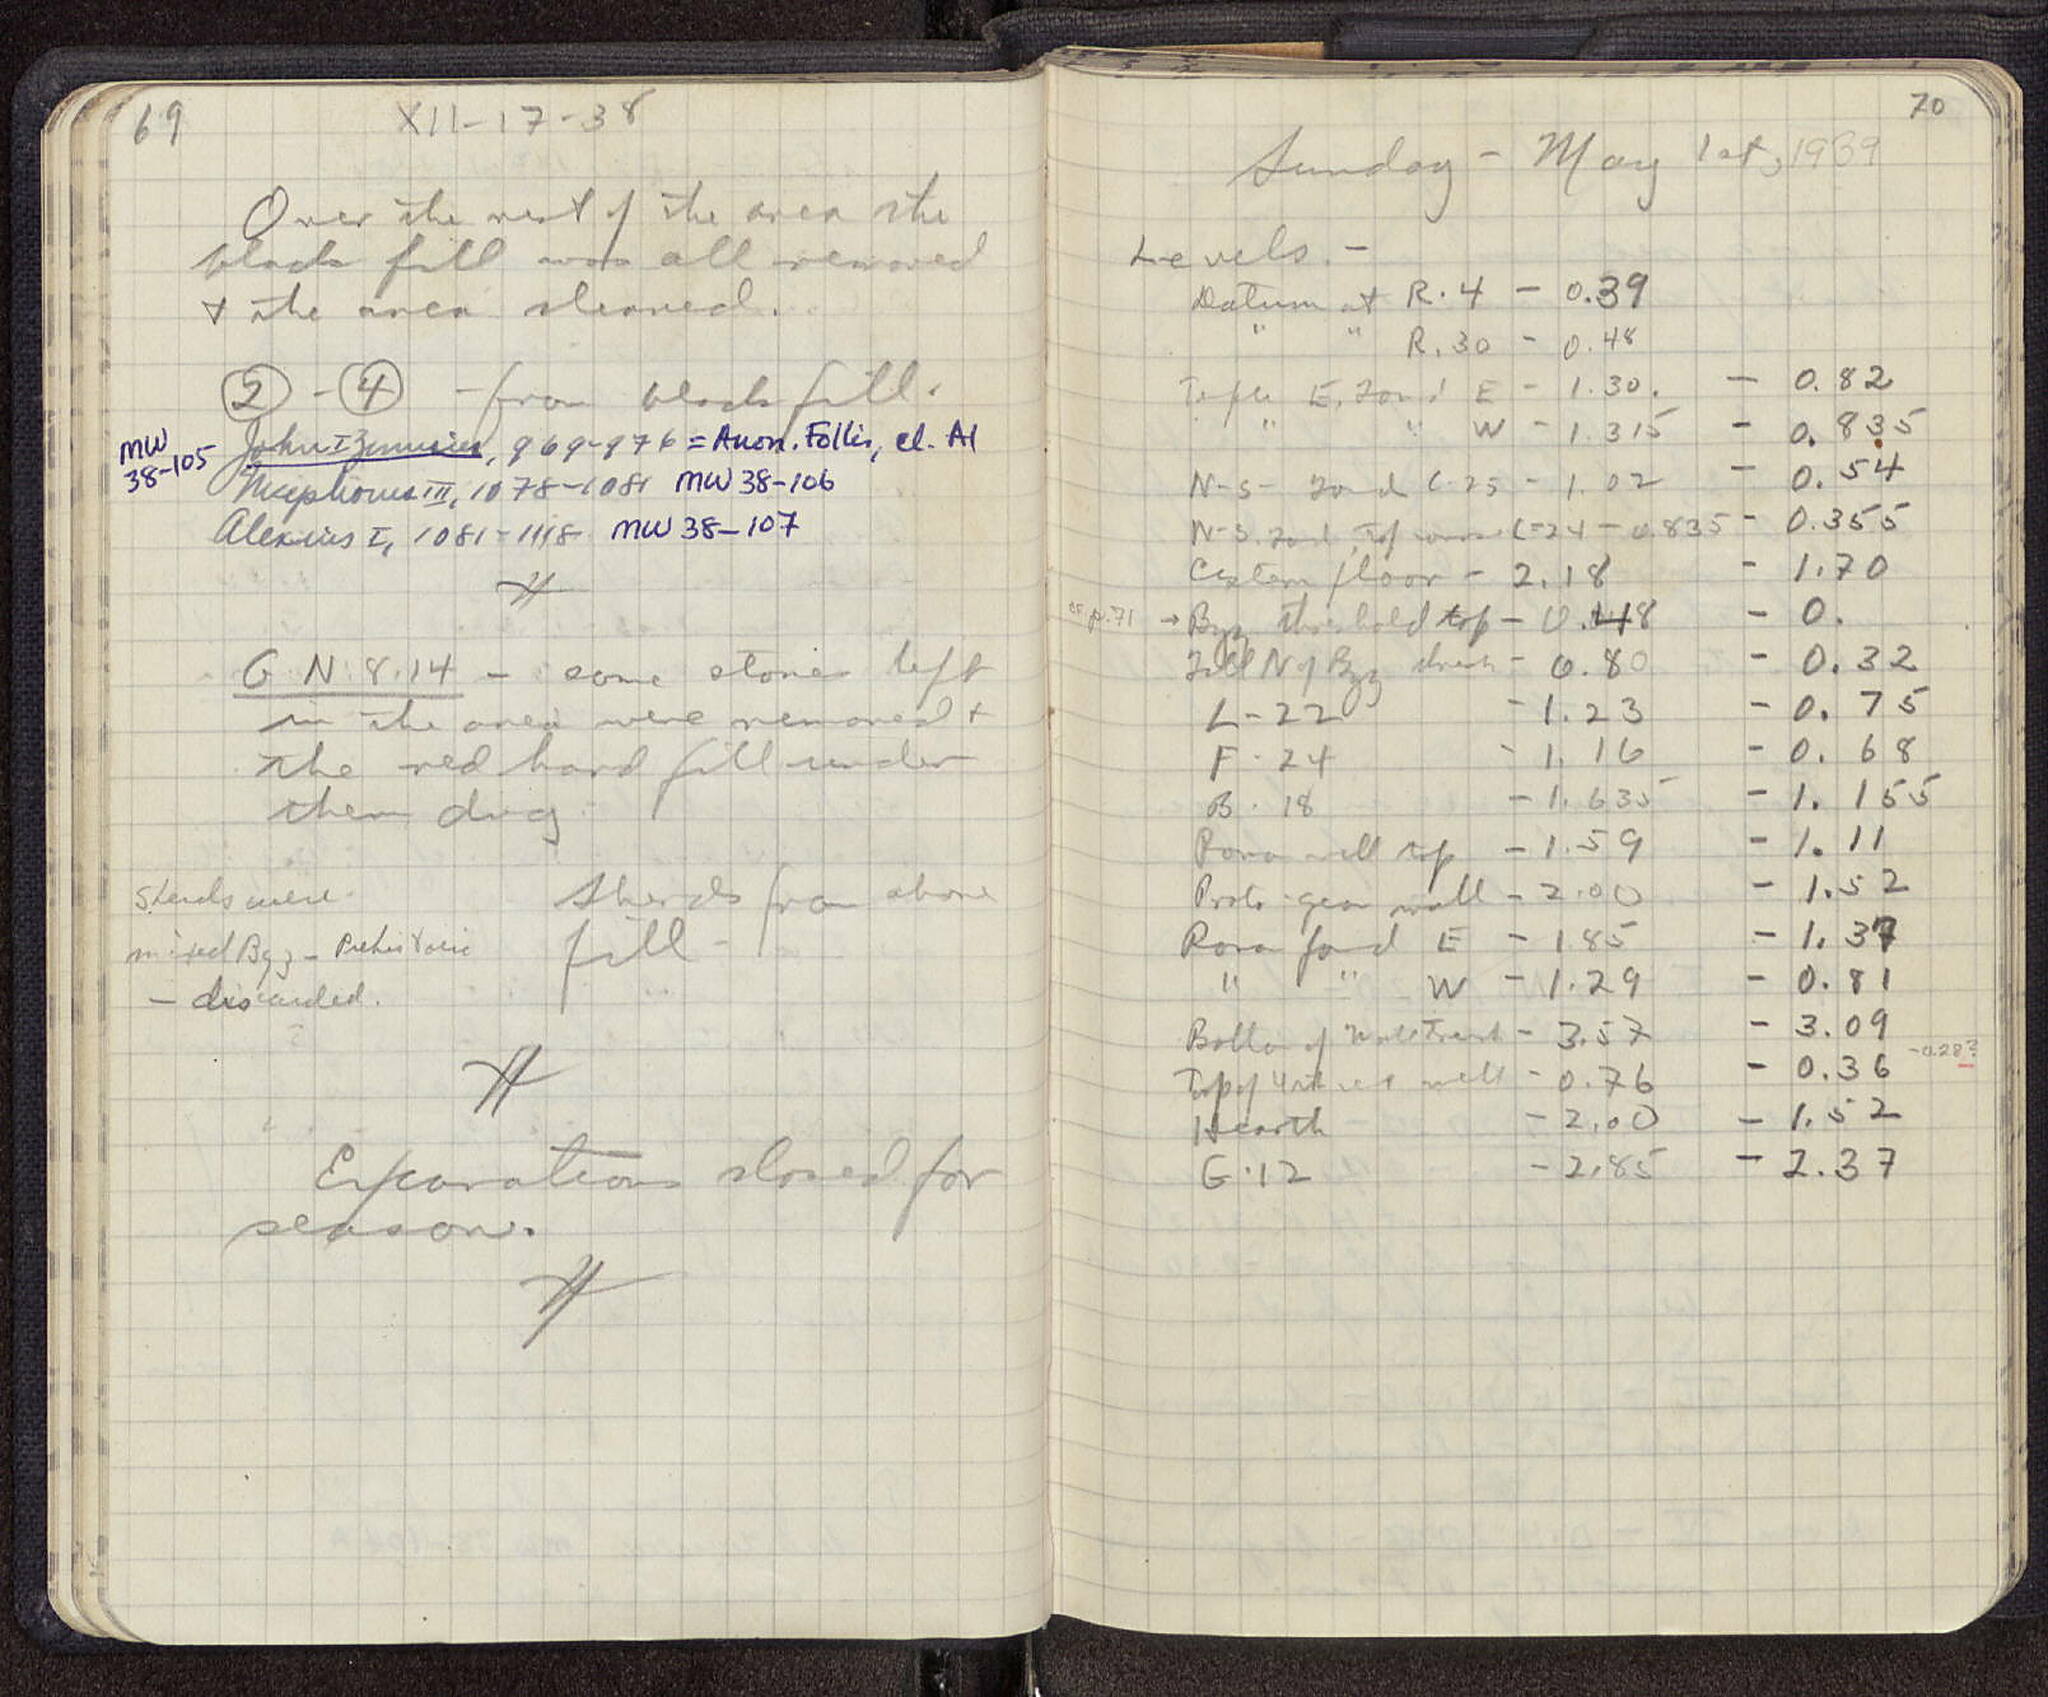 69
XII-17-38
Over the rest of the area the
black fill was all removed
+ the area cleaned.
② - ④ - from black fill.
MW
38-105
John I Zimisces, 969-976 = Anon. Follis, cl. A1
Nicephorus III, 1078-1081 MW 38-106
Alexius I, 1081-1118 MW 38-107
G N. 8.14 - some stones left
in the area were removed +
the red hard fill under
them dug.
Sherds from above
fill -
Sherds were
mixed Byz - Prehistoric
- discarded.
Excavations closed for
season.
70
Sunday - May 1st, 1939
Levels. -
Datum at R.4 - 0.39
" " R.30 - 0.48
E. Found E - 1.30. - 0.82
" " W - 1.315 - 0.835
N-S- Found C-25 - 1.02 - 0.54
N-S. Found, Top C-24 - 0.835 - 0.355
Cistern floor - 2.18 - 1.70
cf p.71 → Byz threshold top - 0.48 - 0.
Fill N of Byz thresh - 0.80 - 0.32
L-22 - 1.23 - 0.75
F-24 - 1.16 - 0.68
B. 18 - 1.635 - 1.155
Poros wall top - 1.59 - 1.11
Proto-geom wall - 2.00 - 1.52
Poros found E - 1.85 - 1.37
" " W - 1.29 - 0.81
Bottom of Trench - 3.57 - 3.09
Top of well - 0.76 - 0.36 -0.28?
Hearth - 2.00 - 1.52
G.12 - 2.85 - 2.37